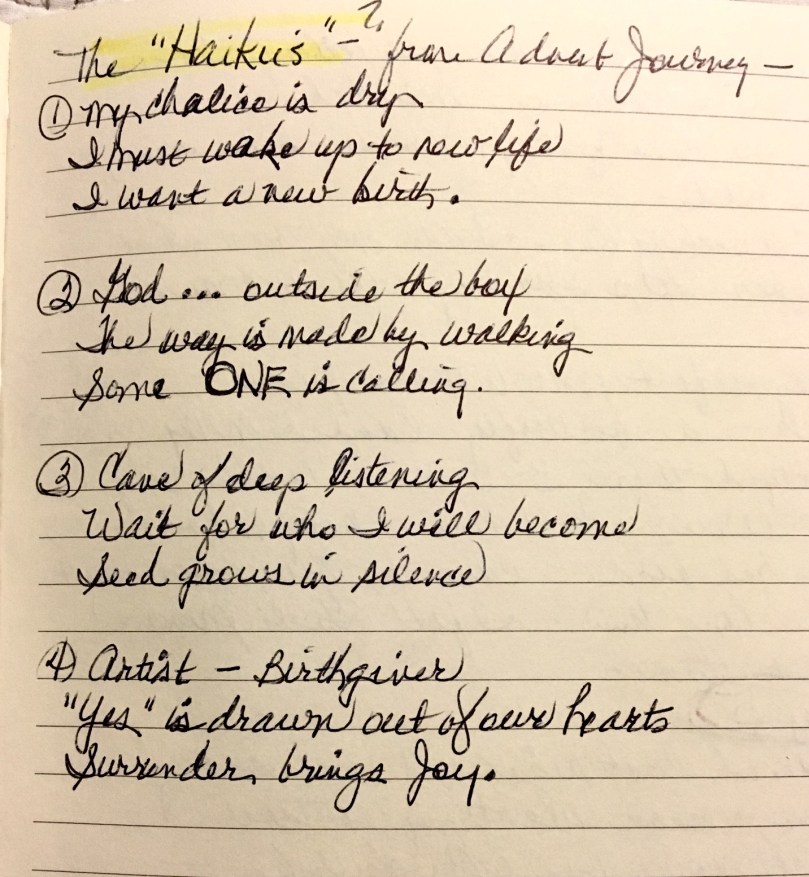 The "Haiku's" -? from Advent Journey -
① my chalice is dry
I must wake up to new life
I want a new birth.
② God... outside the box
The way is made by walking
Some ONE is calling.
③ Cave of deep listening
Wait for who I will become
Seed grows in silence
④ Artist - Birthgiver
"Yes" is drawn out of our hearts
Surrender brings Joy.